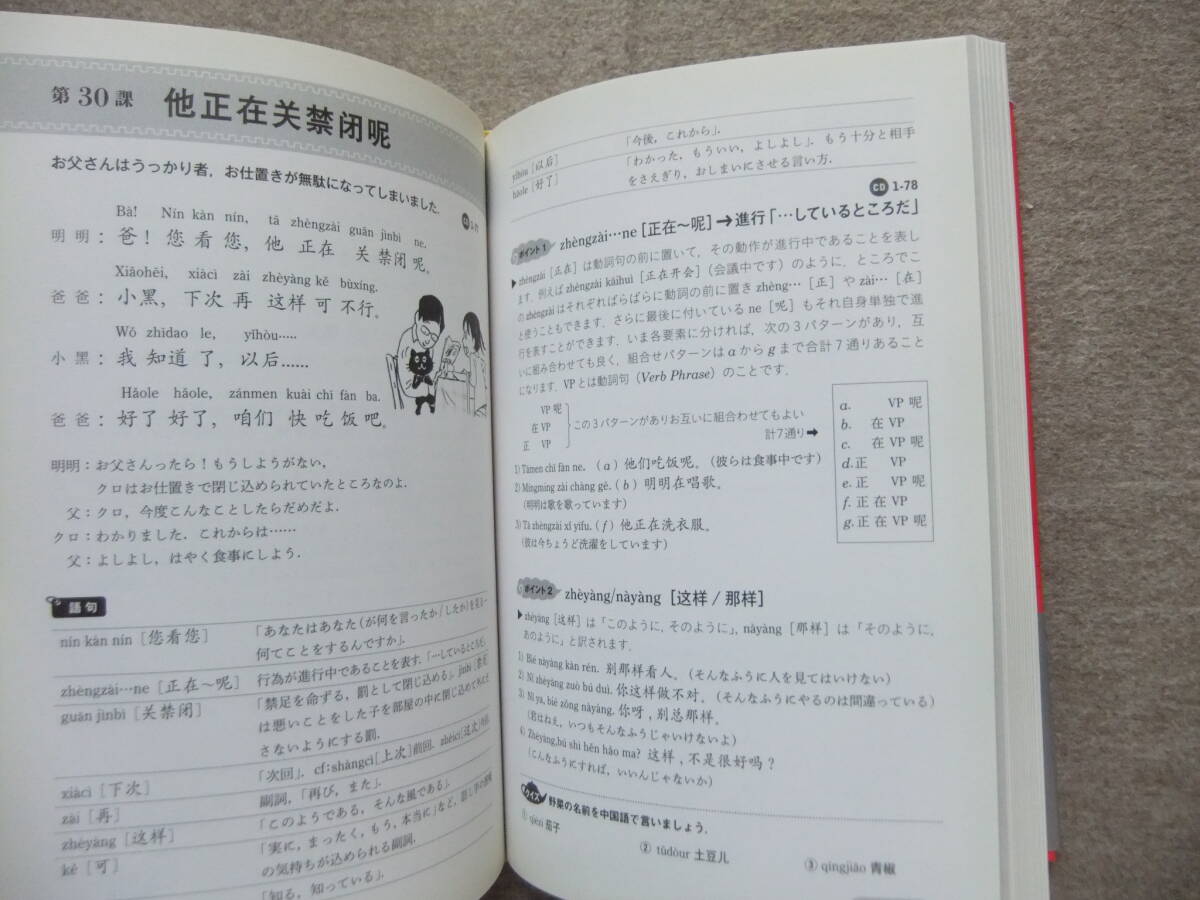 第30課 他正在关禁闭呢
お父さんはうっかり者，お仕置きが無駄になってしまいました．
CD
Bà! Nín kàn nín, tā zhèngzài guān jìnbì ne.
明明：爸！您看您，他 正在 关 禁闭呢。
Xiǎohēi, xiàcì zài zhèyàng kě bùxíng.
爸爸：小黑，下次 再 这样 可 不行。
Wǒ zhīdao le, yǐhòu......
小黑：我 知道 了，以后......
Hǎole hǎole, zánmen kuài chī fàn ba.
爸爸：好了 好了，咱们 快 吃 饭 吧。
明明：お父さんったら！もうしようがない，
クロはお仕置きで閉じ込められていたところなのよ．
父：クロ，今度こんなことしたらだめだよ．
クロ：わかりました．これからは……
父：よしよし，はやく食事にしよう．
語句
nín kàn nín［您看您］「あなたはあなた（が何を言ったか／したか）を見る→
何てことをするんですか」．
zhèngzài…ne［正在〜呢］行為が進行中であることを表す．「…しているところだ」
guān jìnbì［关禁闭］「禁足を命ずる，罰として閉じ込める」．jìnbì［禁闭］
は悪いことをした子を部屋の中に閉じ込めて外に出
さないようにする罰．
xiàcì［下次］「次回」．cf：shàngcì［上次］前回．zhèicì［这次］今回
zài［再］副詞，「再び，また」．
zhèyàng［这样］「このようである，そんな風である」．
kě［可］「実に，まったく，もう，本当に」など，話し手の感嘆
の気持ちが込められる副詞．
「知る，知っている」．
yǐhòu［以后］「今後，これから」．
hǎole［好了］「わかった，もういい，よしよし」．もう十分と相手
をさえぎり，おしまいにさせる言い方．
CD 1-78
ポイント1 zhèngzài…ne［正在〜呢］→進行「…しているところだ」
▶zhèngzài［正在］は動詞句の前に置いて，その動作が進行中であることを表し
ます．例えばzhèngzài kāihuì［正在开会］（会議中です）のように．ところでこ
のzhèngzàiはそれぞればらばらに動詞の前に置き zhèng…［正］や zài…［在］
と使うこともできます．さらに最後に付いている ne［呢］もそれ自身単独で進
行を表すことができます．いま各要素に分ければ，次の3パターンがあり，互
いに組み合わせても良く，組合せパターンは a から g まで合計7通りあること
になります．VPとは動詞句（Verb Phrase）のことです．
VP 呢
在 VP
正 VP
この3パターンがありお互いに組合わせてもよい
計7通り➡
a. VP 呢
b. 在 VP
c. 在 VP 呢
d. 正 VP
e. 正 VP 呢
f. 正 在 VP
g. 正 在 VP 呢
1) Tāmen chī fàn ne.（a）他们吃饭呢。（彼らは食事中です）
2) Míngming zài chàng gē.（b）明明在唱歌。
（明明は歌を歌っています）
3) Tā zhèngzài xǐ yīfu.（f）他正在洗衣服。
（彼は今ちょうど洗濯をしています）
ポイント2 zhèyàng/nàyàng［这样 / 那样］
▶zhèyàng［这样］は「このように，そのように」，nàyàng［那样］は「そのように，
あのように」と訳されます．
1) Bié nàyàng kàn rén. 别那样看人。（そんなふうに人を見てはいけない）
2) Nǐ zhèyàng zuò bú duì. 你这样做不对。（そんなふうにやるのは間違っている）
3) Nǐ ya, bié zǒng nàyàng. 你呀，别总那样。
（君はねえ，いつもそんなふうじゃいけないよ）
4) Zhèyàng, bú shì hěn hǎo ma? 这样，不是很好吗？
（こんなふうにすれば，いいんじゃないか）
クイズ 野菜の名前を中国語で言いましょう．
① qiézi 茄子
② tǔdòur 土豆儿
③ qīngjiāo 青椒